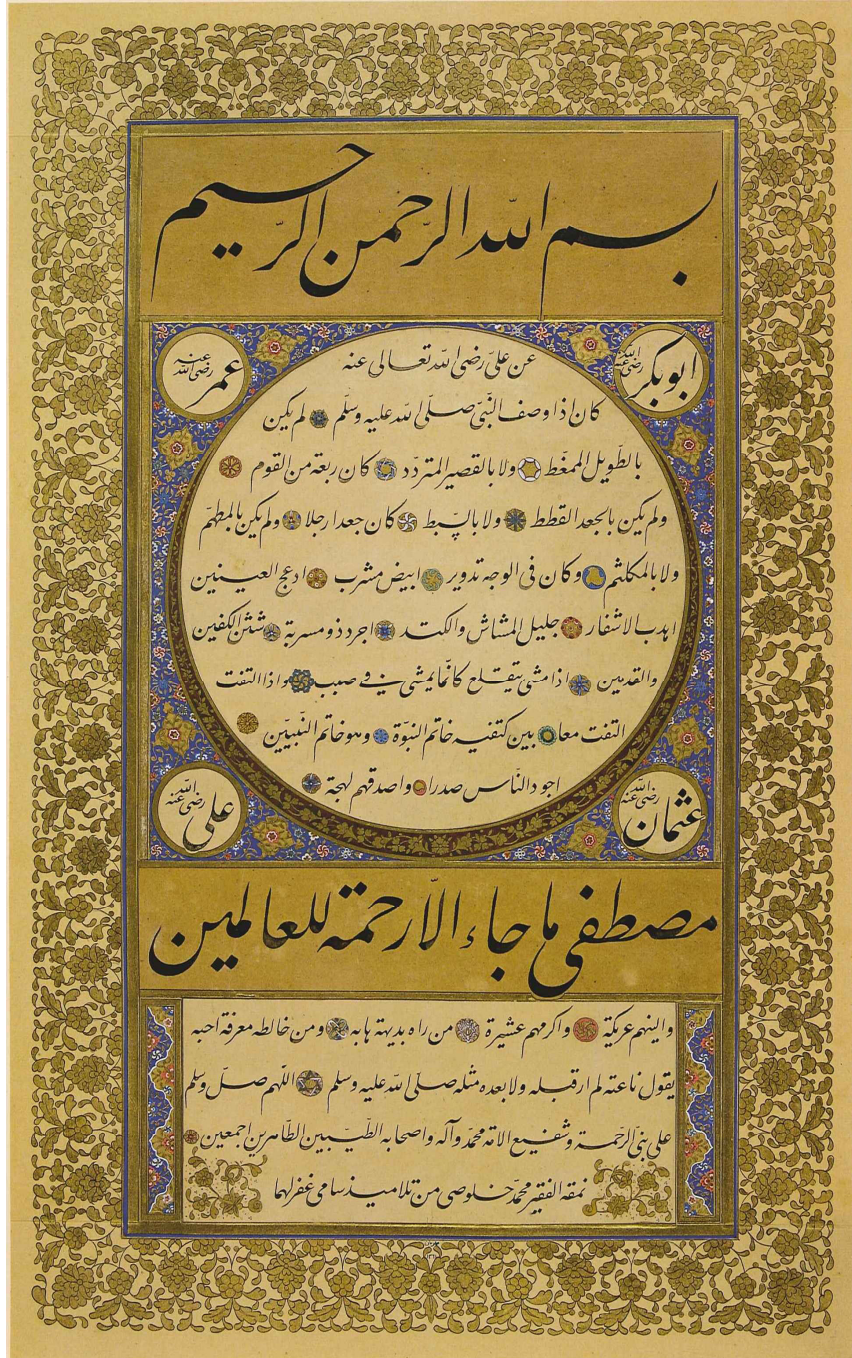 بسم الله الرّحمن الرّحيم
ابوبكر رضى الله عنه
عمر رضى الله عنه
عن علىّ رضى الله تعالى عنه
كان اذا وصف النّبىّ صلّى الله عليه وسلّم لم يكن
بالطّويل الممغّط ولا بالقصير المتردّد كان ربعة من القوم
ولم يكن بالجعد القطط ولا بالسّبط كان جعدا رجلا ولم يكن بالمطهّم
ولا بالمكلثم وكان فى الوجه تدوير ابيض مشرب ادعج العينين
اهدب الاشفار جليل المشاش والكتد اجرد ذو مسربة شثن الكفين
والقدمين اذا مشى يتقلع كانّما يمشى فى صبب واذا التفت
التفت معا بين كتفيه خاتم النبوّة وهو خاتم النّبيّين
اجود النّاس صدرا واصدقهم لهجة
عثمان رضى الله عنه
على رضى الله عنه
مصطفى ما جاء الّا رحمة للعالمين
والينهم عريكة واكرمهم عشيرة من راه بديهة هابه ومن خالطه معرفة احبه
يقول ناعته لم ار قبله ولا بعده مثله صلى الله عليه وسلم اللهم صلّ وسلم
على نبىّ الرّحمة وشفيع الامّة محمّد وآله واصحابه الطّيّبين الطّاهرين اجمعين
نمقه الفقير محمّد خلوصى من تلاميذ سامى غفر لهما